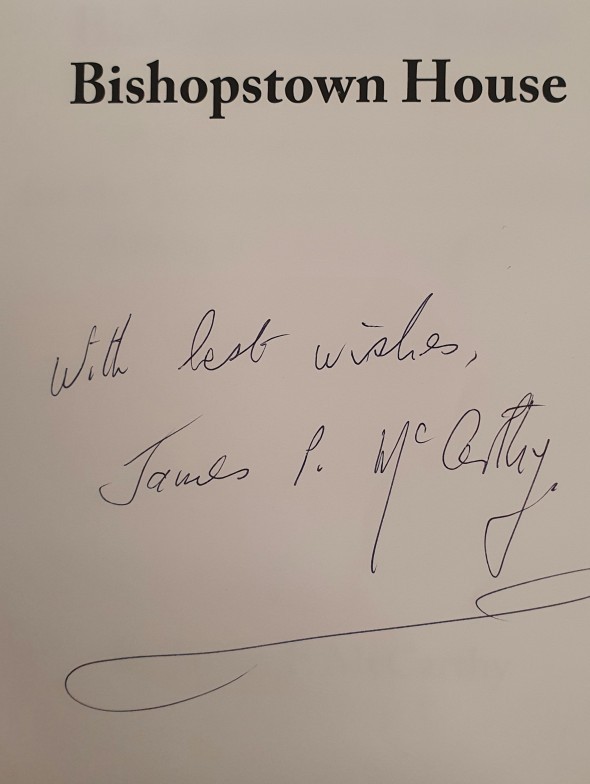 Bishopstown House
With best wishes,
James P. McCarthy.
McCarthy